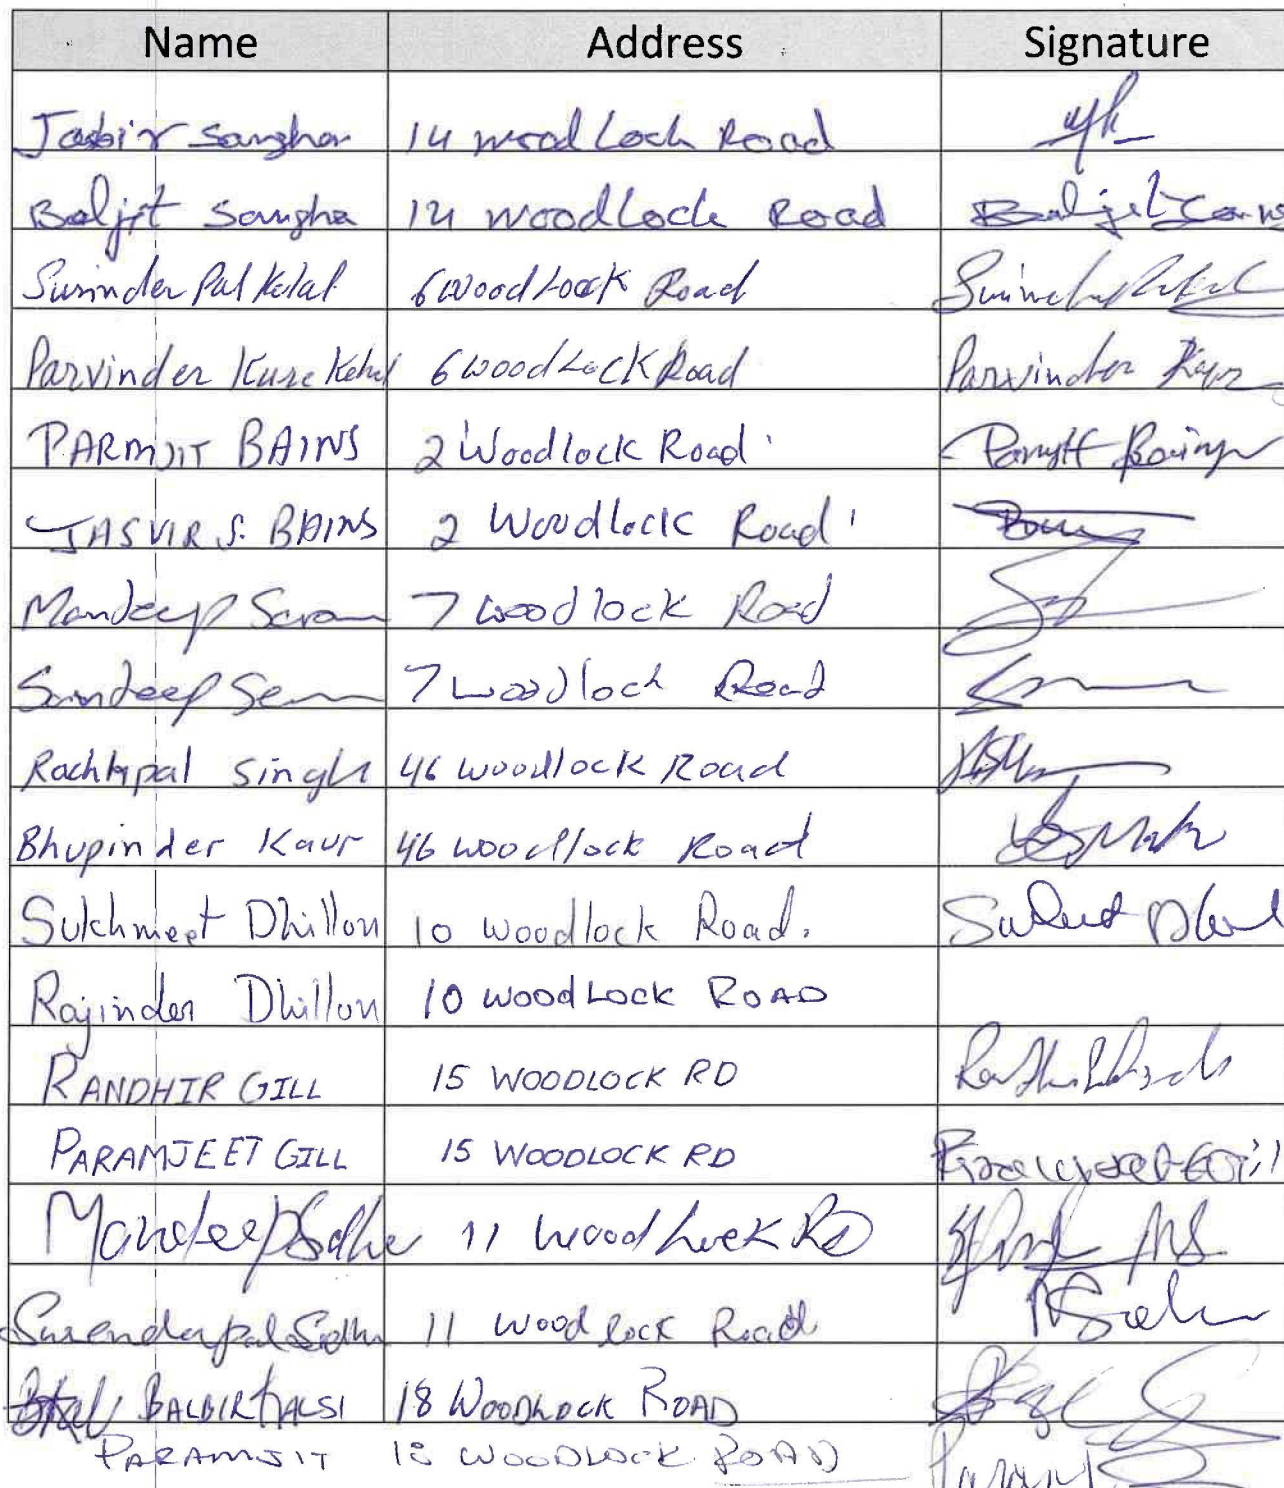 Name Address Signature
Jasbir Sangha 14 wood Lock Road
Baljit Sangha 14 woodLock Road Baljit
Surinder Pal Kelal 6 Wood Lock Road
Parvinder Kure 6 wood Lock Road Parvinder Kaur
PARMJIT BAINS 2 Woodlock Road
JASVIR S. BAINS 2 Woodlock Road
Mandeep 7 woodlock Road
Sandeep 7 woodlock Road
Rachhpal Singh 46 woodlock Road
Bhupinder Kaur 46 woodlock Road
Sukhmeet Dhillon 10 Woodlock Road.
Rajinder Dhillon 10 WOODLOCK ROAD
RANDHIR GILL 15 WOODLOCK RD
PARAMJEET GILL 15 WOODLOCK RD
Mandeep Sidhu 11 Wood Lock Rd
Surenderpal Sidhu 11 Wood Lock Road
BALBIR KALSI 18 WOODLOCK ROAD
PARAMJIT 18 WOODLOCK ROAD